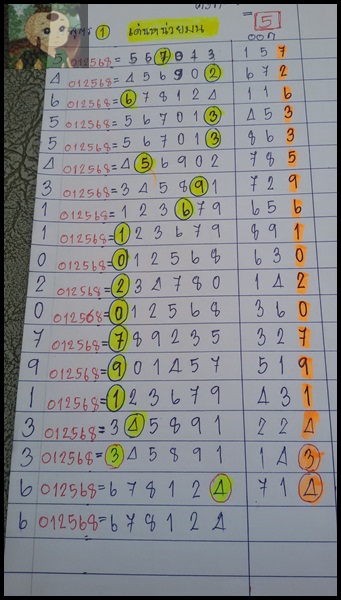 สูตร 1 เด่นหน่วยบน = 5
ออก
5 012568= 5 6 7 0 4 3 1 5 7
4 012568= 4 5 6 9 0 2 6 7 2
6 012568= 6 7 8 1 2 4 1 1 6
5 012568= 5 6 7 0 1 3 4 5 3
5 012568= 5 6 7 0 1 3 8 6 3
4 012568= 4 5 6 9 0 2 7 8 5
3 012568= 3 4 5 8 9 1 7 2 9
1 012568= 1 2 3 6 7 9 6 5 6
1 012568= 1 2 3 6 7 9 8 9 1
0 012568= 0 1 2 5 6 8 6 3 0
2 012568= 2 3 4 7 8 0 1 4 2
0 012568= 0 1 2 5 6 8 3 6 0
7 012568= 7 8 9 2 3 5 3 2 7
9 012568= 9 0 1 4 5 7 5 1 9
1 012568= 1 2 3 6 7 9 4 3 1
3 012568= 3 4 5 8 9 1 2 2 4
3 012568= 3 4 5 8 9 1 1 4 3
6 012568= 6 7 8 1 2 4 7 1 4
6 012568= 6 7 8 1 2 4